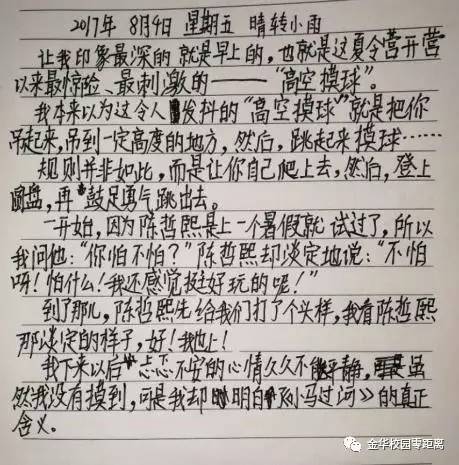 2017年 8月4日 星期五 晴转小雨
让我印象最深的就是早上的,也就是这夏令营开营
以来最惊险、最刺激的——“高空摸球”。
我本来以为这令人发抖的“高空摸球”就是把你
吊起来,吊到一定高度的地方,然后,跳起来摸球……
规则并非如此,而是让你自己爬上去,然后,登上
圆盘,再鼓足勇气跳出去。
一开始,因为陈哲熙是上一个暑假就试过了,所以
我问他:“你怕不怕?”陈哲熙却淡定地说:“不怕
呀!怕什么!我还感觉挺好玩的呢!”
到了那儿,陈哲熙先给我们打了个头样,我看陈哲熙
那淡定的样子,好!我也上!
我下来以后忐忑不安的心情久久不能平静,虽
然我没有摸到,可是我却明白《小马过河》的真正
含义。
金华校园零距离